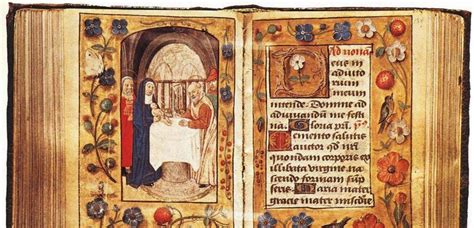 Ad nona
Deus in
adiuto
rium
meum
intende. Domine ad
adiuuandum me fes
tina. Gloria pri.
Memento salutis
auctor qd nri
quondam corporis ex
illibata virgine nas
cendo formam sup
seris Maria mater
gracie mater misedie